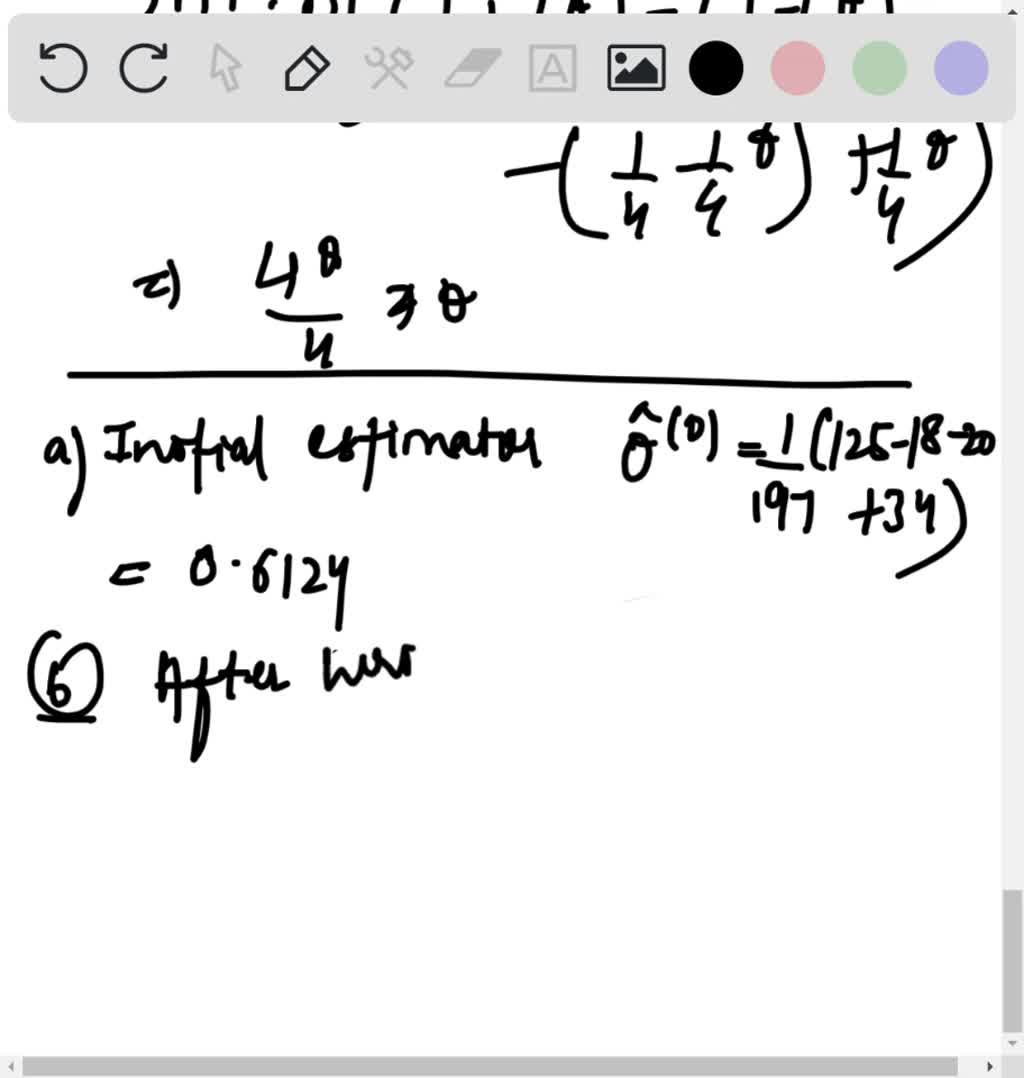 A
-(1/4 - 1/4 θ) + 1/4 θ)
=) 4θ/4 ⇒ θ
a) Initial estimator θ̂^(0) = 1/197 (125-18-20
+34)
= 0.6124
(b) After